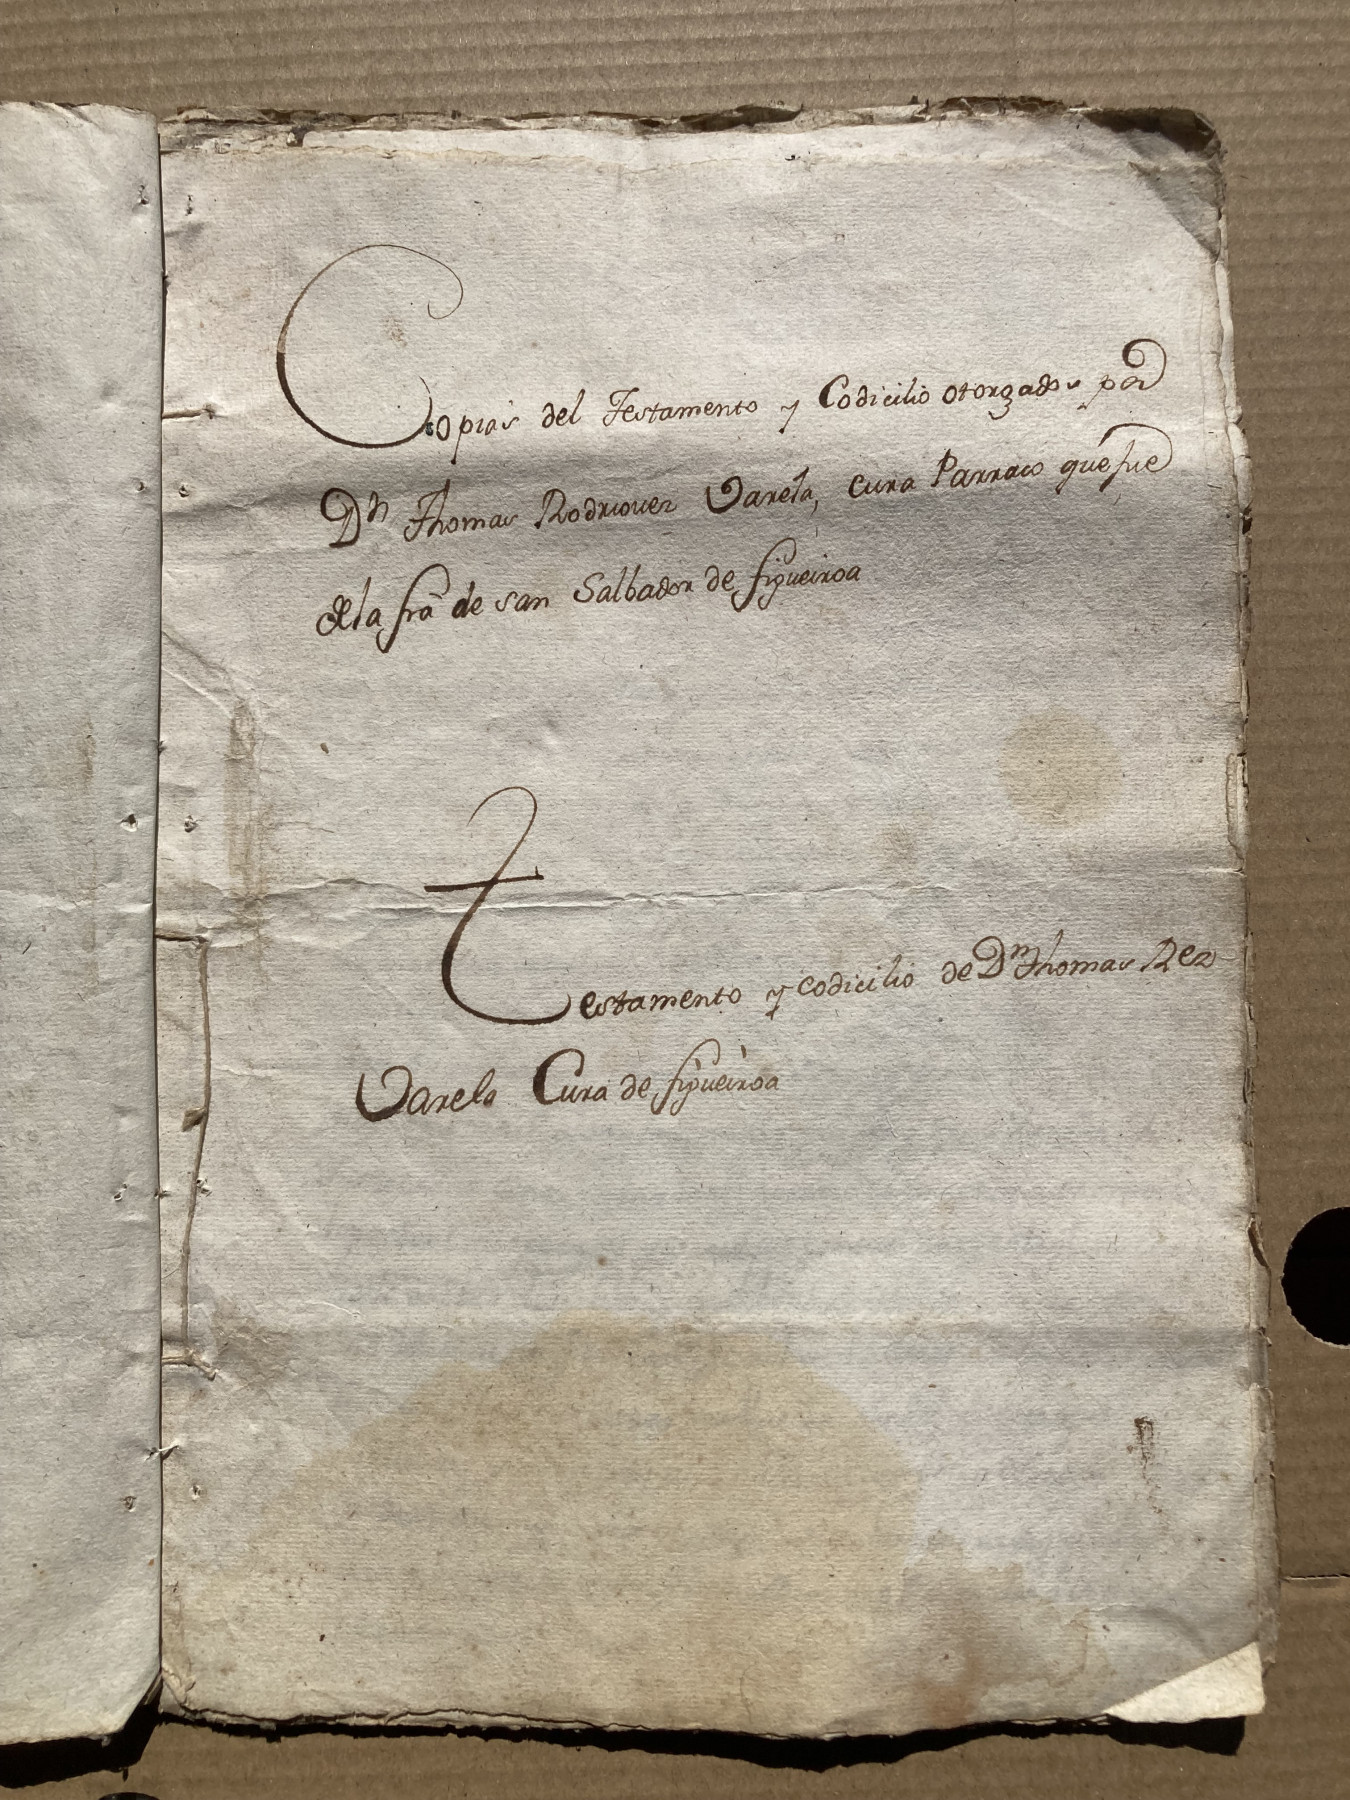 Copias del Testamento y Codicilio otorgados por
Dn Thomas Rodriguez Varela, cura Parraco que fue
dela fra de san Salbador de figueiroa
testamento y codicilio de Dn Thomas Rez
Varela Cura de figueiroa